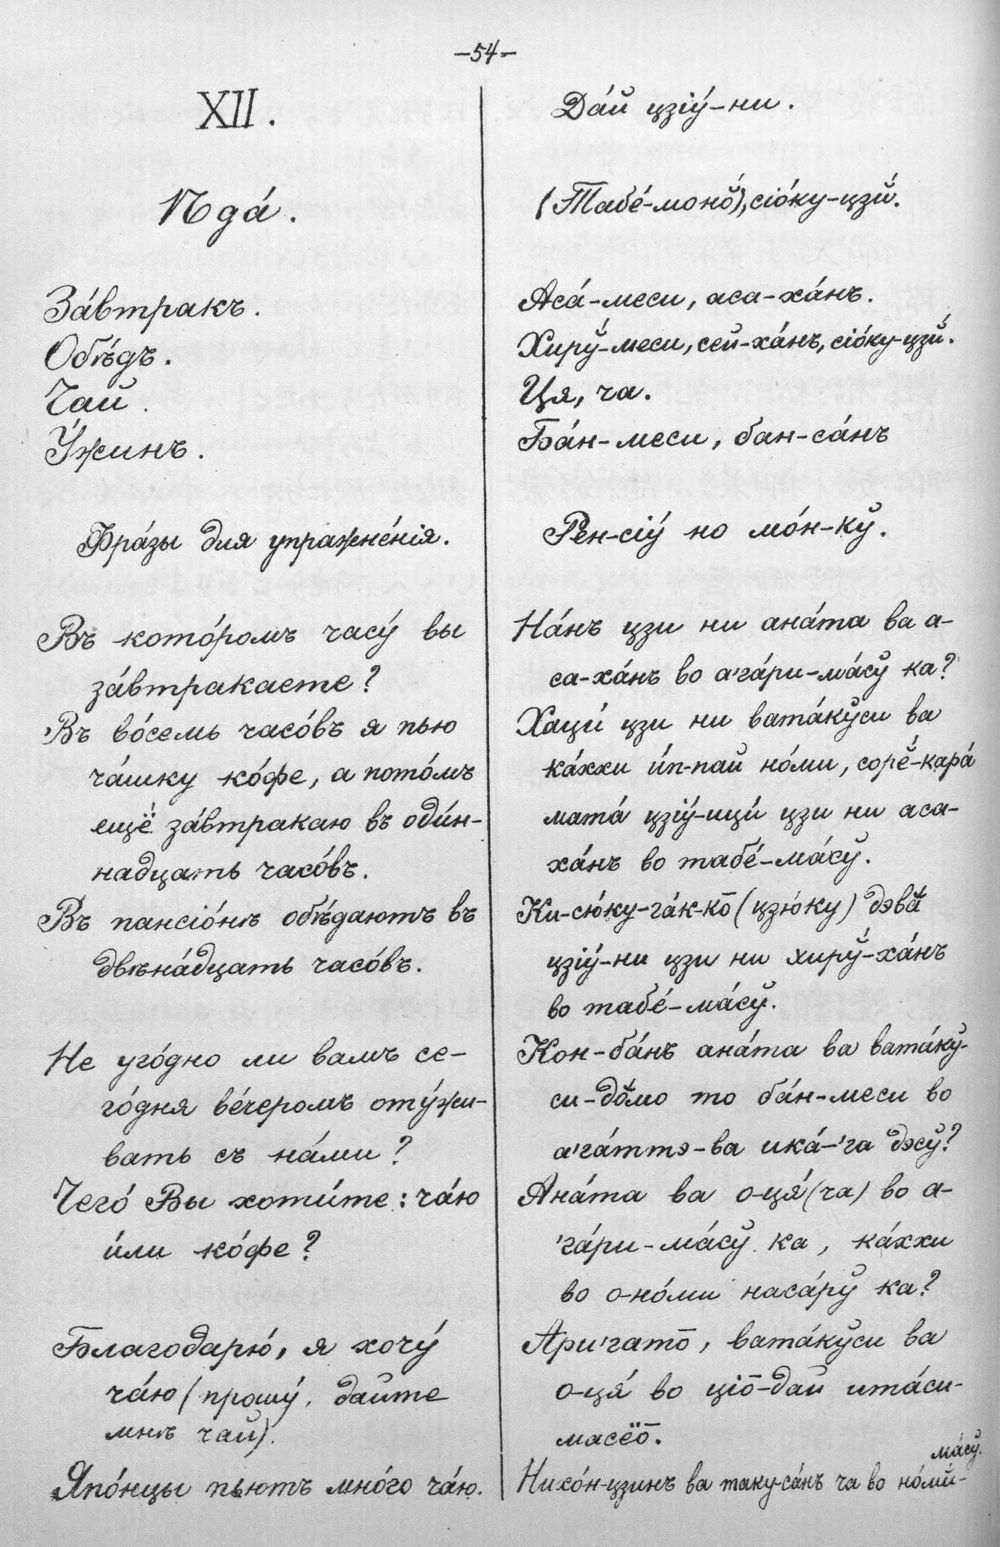 —54—
XII.
Ѣда́.
За́втракъ.
Обѣ́дъ.
Чай.
У́жинъ.
Фра́зы для упражне́нія.
Въ кото́ромъ часу́ вы
за́втракаете?
Въ во́семь часо́въ я пью
ча́шку ко́фе, а пото́мъ
ещё за́втракаю въ оди́н-
надцать часо́въ.
Въ пансіо́нѣ обѣ́даютъ въ
двѣна́дцать часо́въ.
Не уго́дно ли вамъ се-
го́дня ве́черомъ оту́жи-
вать съ на́ми?
Чего́ Вы хоти́те: ча́ю
и́ли ко́фе?
Благодарю́, я хочу́
ча́ю (прошу́, дайте
мнѣ чай).
Япо́нцы пьютъ мно́го ча́ю.
Да́й цзіу́-ни.
(Табе́-моно̆́), сіо́ку-цзӣ́.
Аса́-меси, аса-ха́нъ.
Хирў́-меси, сей-ха́нъ, сіо́ку-цзӣ́.
Ця, ча.
Ба́н-меси, бан-са́нъ
Рен-сіу́ но мо́н-кў.
На́нъ цзи ни ана́та ва а-
са-ха́нъ во а'га́ри-ма́сў ка?
Хаци́ цзи ни вата́кўси ва
ка́ххи и́п-пай но́ми, сорӗ́-кара́
мата́ цзіў́-ици́ цзи ни аса-
ха́нъ во табе́-ма́сў.
Ки-сю́ку-га́к-ко̄ (цзю́ку) дэвӑ
цзіў́-ни цзи ни хирў́-ха́нъ
во табе́-ма́сў.
Кон-ба́нъ ана́та ва вата́кў-
си-до̆мо то ба́н-меси во
а'га́ттэ-ва ика́-'га дэсў?
Ана́та ва о-ця́ (ча) во а-
'га́ри-ма́сў ка, ка́ххи
во о-но́ми наса́рў ка?
Ари'гато̄, вата́кўси ва
о-ця́ во ціо̄-дай ита́си-
масёо̄.
Нихо́н-цзинъ ва таку-са́нъ ча во но́ми-
ма́сў.